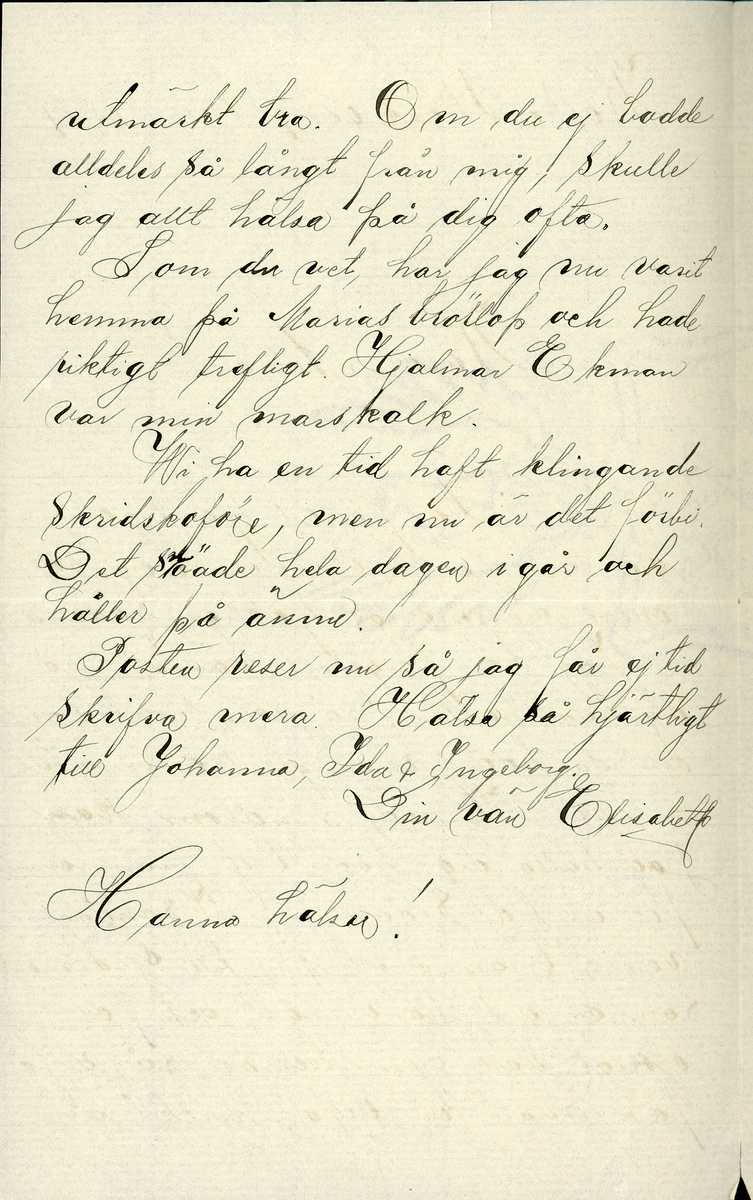 utmärkt bra. Om du ej bodde
alldeles så långt från mig, skulle
jag allt hälsa på dig ofta.
Som du vet, har jag nu varit
hemma på Marias bröllop och hade
riktigt trefligt. Hjalmar Ekman
var min marskalk.
Wi ha en tid haft klingande
skridskoföre, men nu är det förbi.
Det snöade hela dagen i går och
håller på ännu.
Posten reser nu så jag får ej tid
skrifva mera. Hälsa så hjärtligt
till Johanna, Ida & Ingeborg.
Din vän Elisabeth
Hanna hälsar!